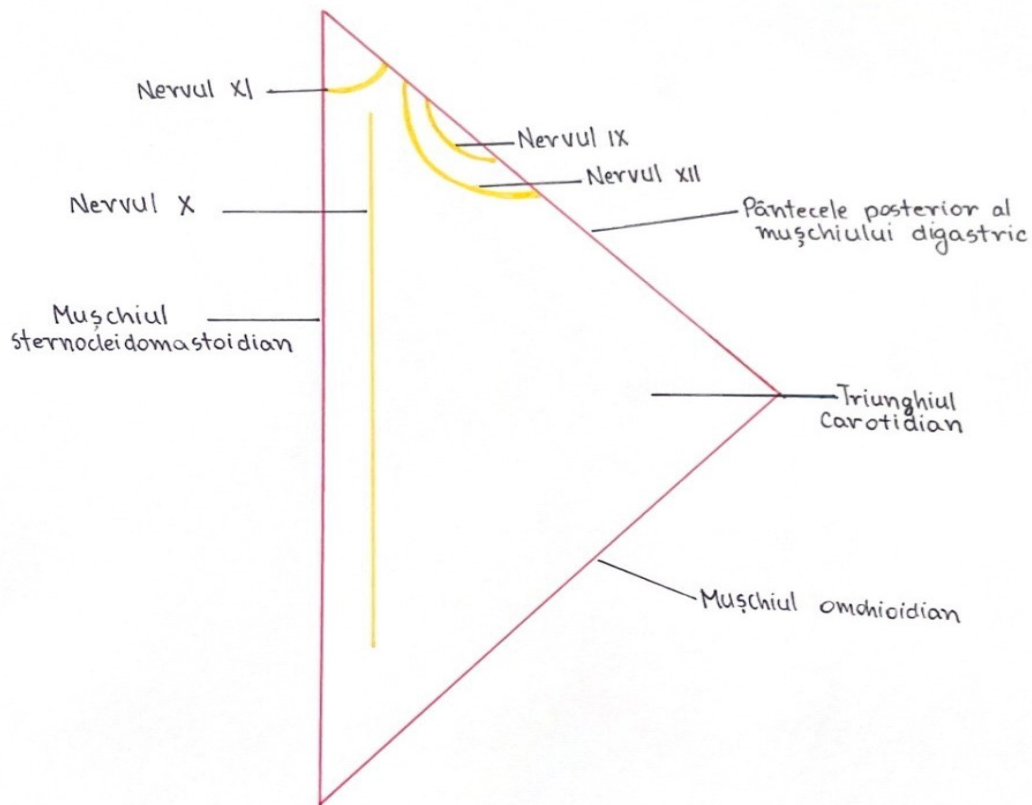 Nervul XI
Nervul IX
Nervul XII
Nervul X
Pântecele posterior al
mușchiului digastric
Mușchiul
sternocleidomastoidian
Triunghiul
Carotidian
Mușchiul omohioidian